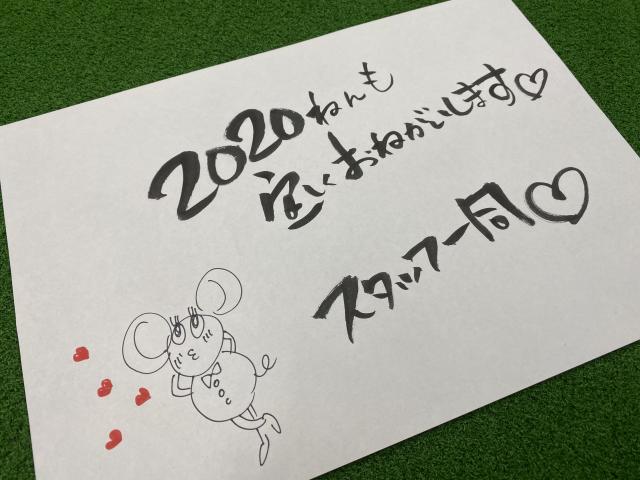 2020ねんも
宜しくおねがいします♡
スタッフ一同♡